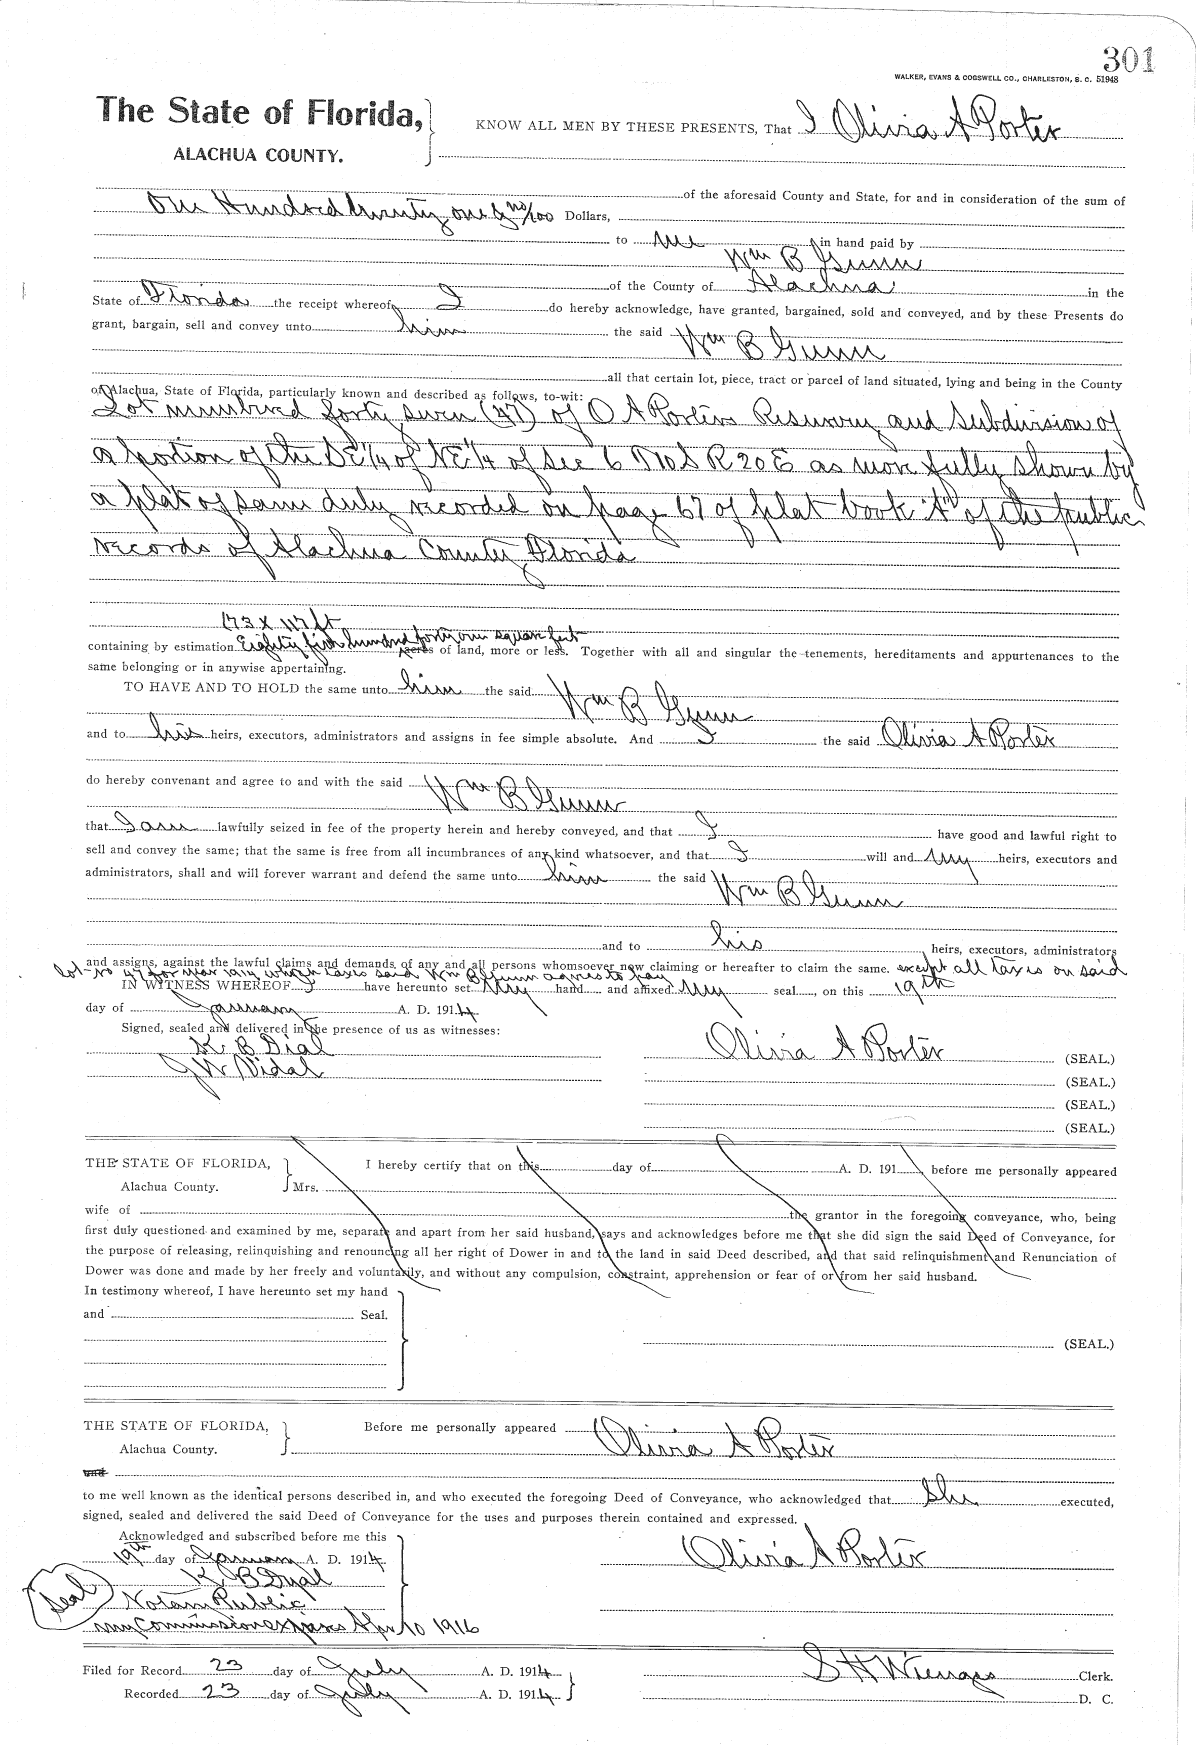 301
WALKER, EVANS & COGSWELL CO., CHARLESTON, S. C. 51948
The State of Florida,
ALACHUA COUNTY.
KNOW ALL MEN BY THESE PRESENTS, That I Olivia A Porter
of the aforesaid County and State, for and in consideration of the sum of
One Hundred twenty one & no/100 Dollars,
to me in hand paid by
Wm B Gunn
of the County of Alachua in the
State of Florida the receipt whereof I do hereby acknowledge, have granted, bargained, sold and conveyed, and by these Presents do
grant, bargain, sell and convey unto him the said Wm B Gunn
all that certain lot, piece, tract or parcel of land situated, lying and being in the County
of Alachua, State of Florida, particularly known and described as follows, to-wit:
Lot numbered forty seven (47) of O A Porters Resurvey and Subdivision of
a portion of the SE 1/4 of NE 1/4 of Sec 6 T10S R 20 E as more fully shown by
a plat of same duly recorded on page 67 of plat book "A" of the public
records of Alachua County Florida
173 x 117 ft
containing by estimation Eighty five hundred forty one square feet acres of land, more or less. Together with all and singular the tenements, hereditaments and appurtenances to the
same belonging or in anywise appertaining.
TO HAVE AND TO HOLD the same unto him the said Wm B Gunn
and to his heirs, executors, administrators and assigns in fee simple absolute. And I the said Olivia A Porter
do hereby convenant and agree to and with the said Wm B Gunn
that I am lawfully seized in fee of the property herein and hereby conveyed, and that I have good and lawful right to
sell and convey the same; that the same is free from all incumbrances of any kind whatsoever, and that I will and my heirs, executors and
administrators, shall and will forever warrant and defend the same unto him the said Wm B Gunn
and to his heirs, executors, administrators
and assigns, against the lawful claims and demands of any and all persons whomsoever now claiming or hereafter to claim the same. except all taxes on said
lot No 47 for year 1914 which taxes said Wm B Gunn agrees to pay
IN WITNESS WHEREOF I have hereunto set my hand and affixed my seal, on this 19th
day of January A. D. 1914
Signed, sealed and delivered in the presence of us as witnesses:
K B Dial
J W Vidal
Olivia A Porter (SEAL.)
(SEAL.)
(SEAL.)
(SEAL.)
THE STATE OF FLORIDA,
Alachua County.
I hereby certify that on this day of A. D. 191 before me personally appeared
Mrs.
wife of the grantor in the foregoing conveyance, who, being
first duly questioned and examined by me, separate and apart from her said husband, says and acknowledges before me that she did sign the said Deed of Conveyance, for
the purpose of releasing, relinquishing and renouncing all her right of Dower in and to the land in said Deed described, and that said relinquishment and Renunciation of
Dower was done and made by her freely and voluntarily, and without any compulsion, constraint, apprehension or fear of or from her said husband.
In testimony whereof, I have hereunto set my hand
and Seal.
(SEAL.)
THE STATE OF FLORIDA,
Alachua County.
Before me personally appeared Olivia A Porter
and
to me well known as the identical persons described in, and who executed the foregoing Deed of Conveyance, who acknowledged that She executed,
signed, sealed and delivered the said Deed of Conveyance for the uses and purposes therein contained and expressed.
Acknowledged and subscribed before me this
19th day of January A. D. 1914
K B Dyal
Seal
Notary Public
my Commission expires Apr 10 1916
Olivia A Porter
Filed for Record 23 day of July A. D. 1914
Recorded 23 day of July A. D. 1914
S H Wienges Clerk.
D. C.